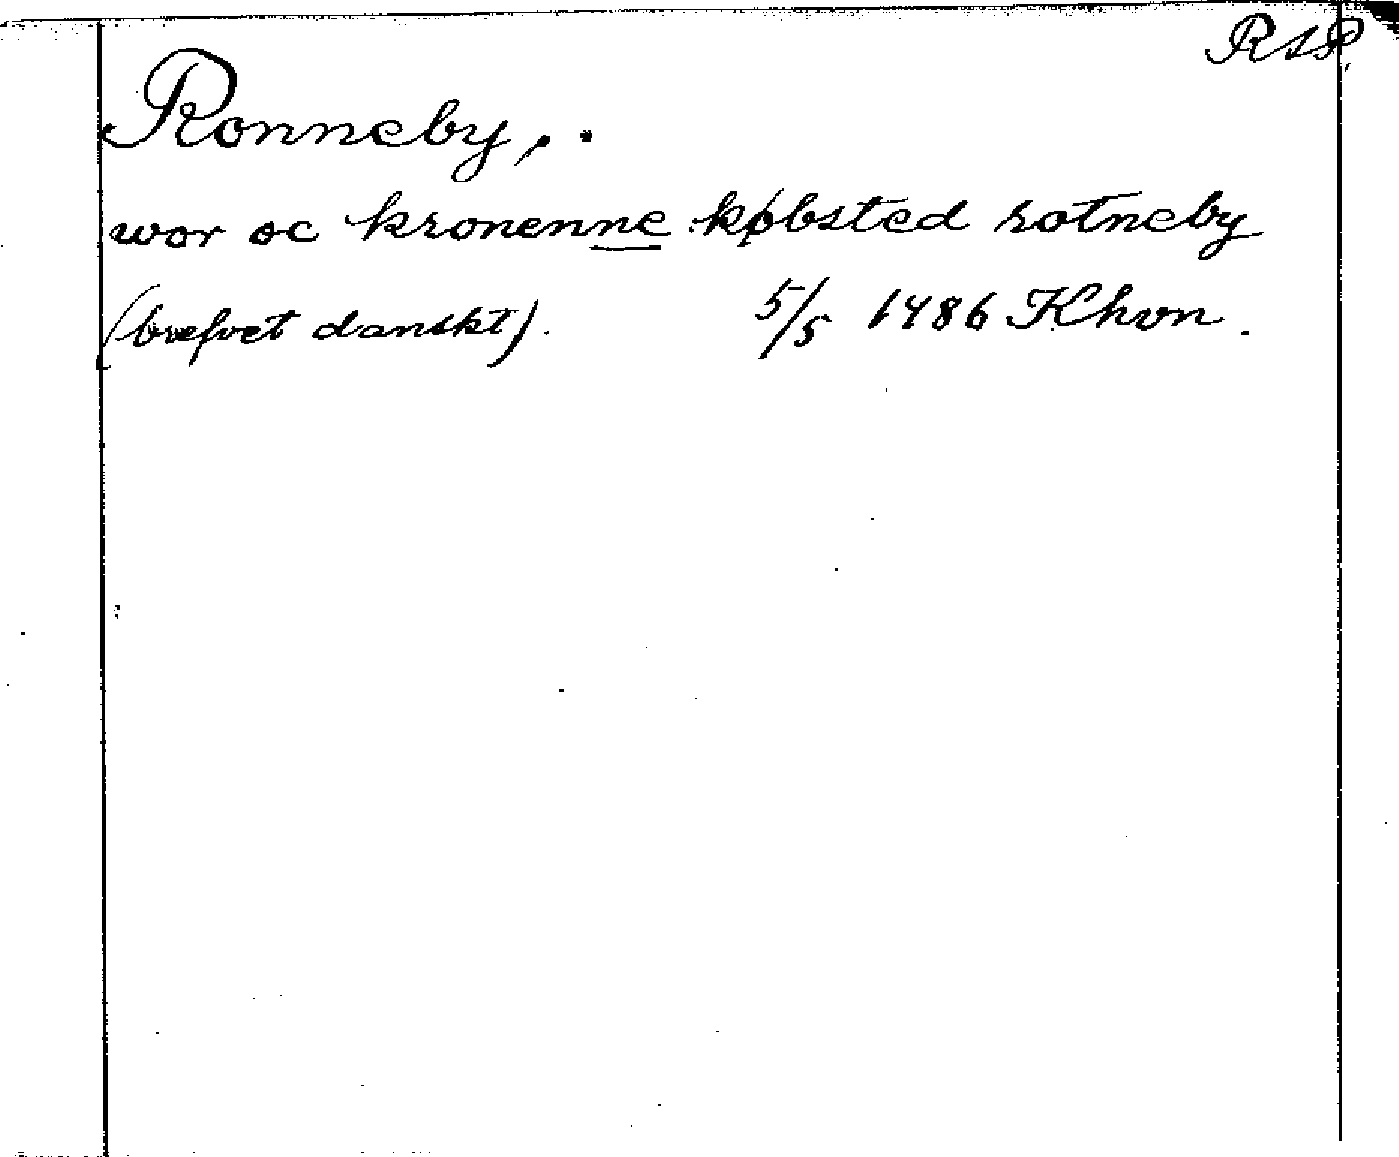 RAP.
Ronneby, .
wor oc kronenne købsted rotneby
(brefvet danskt). 5/5 1486 Khvn.